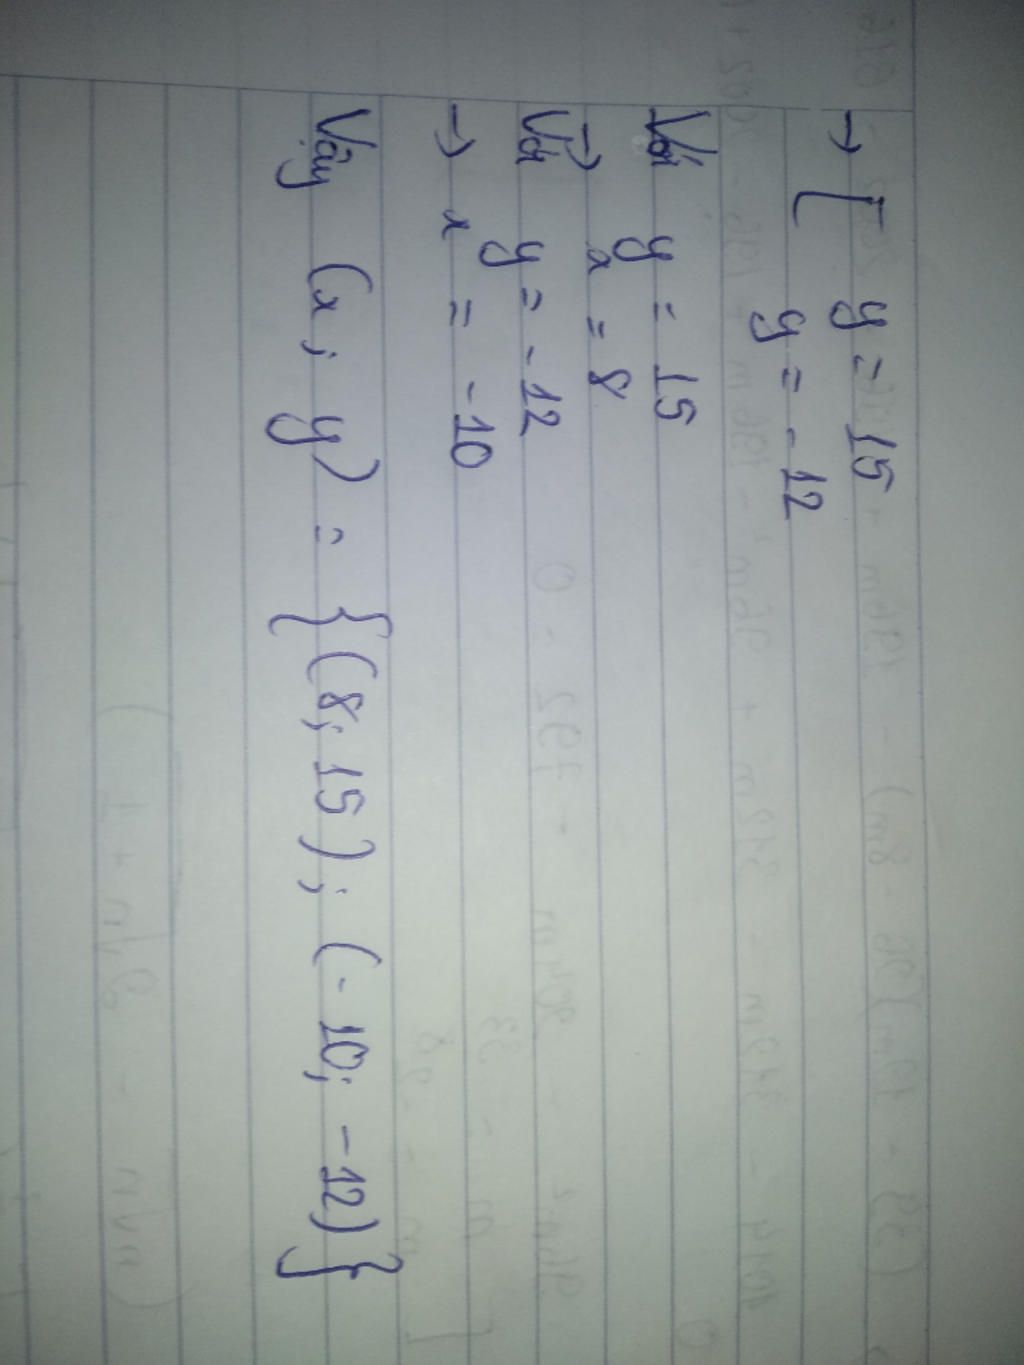 → [ y = 15
y = -12
Với y = 15
→ x = 8
Với y = -12
→ x = -10
Vậy (x; y) = {(8; 15); (-10; -12)}